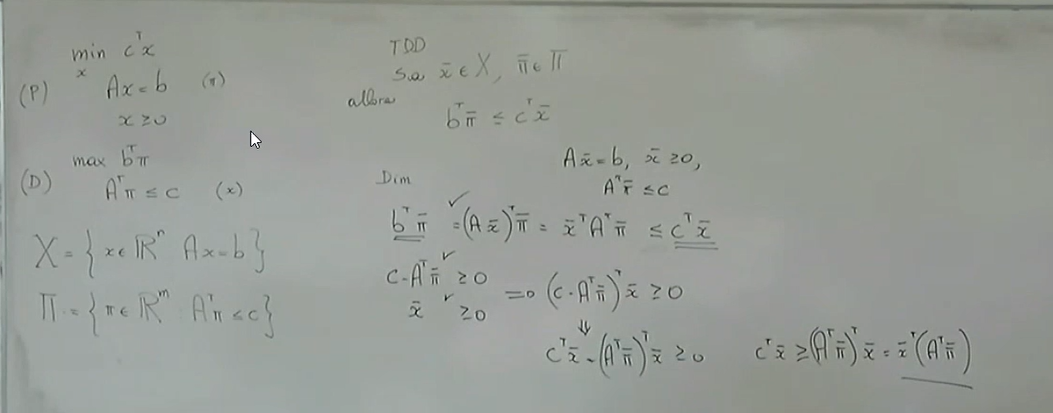 min cᵀx
x
(P) Ax = b (π)
x ≥ 0
max bᵀπ
(D) Aᵀπ ≤ c (x)
X = { x ∈ ℝⁿ Ax = b }
Π = { π ∈ ℝᵐ Aᵀπ ≤ c }
TDD
Sia x̄ ∈ X, π̄ ∈ Π
allora
bᵀπ̄ ≤ cᵀx̄
Ax̄ = b, x̄ ≥ 0,
Aᵀπ̄ ≤ c
Dim
bᵀπ̄ = (Ax̄)ᵀπ̄ = x̄ᵀAᵀπ̄ ≤ cᵀx̄
c - Aᵀπ̄ ≥ 0
x̄ ≥ 0
⇒ (c - Aᵀπ̄)ᵀx̄ ≥ 0
⇓
cᵀx̄ - (Aᵀπ̄)ᵀx̄ ≥ 0
cᵀx̄ ≥ (Aᵀπ̄)ᵀx̄ = x̄ᵀ(Aᵀπ̄)